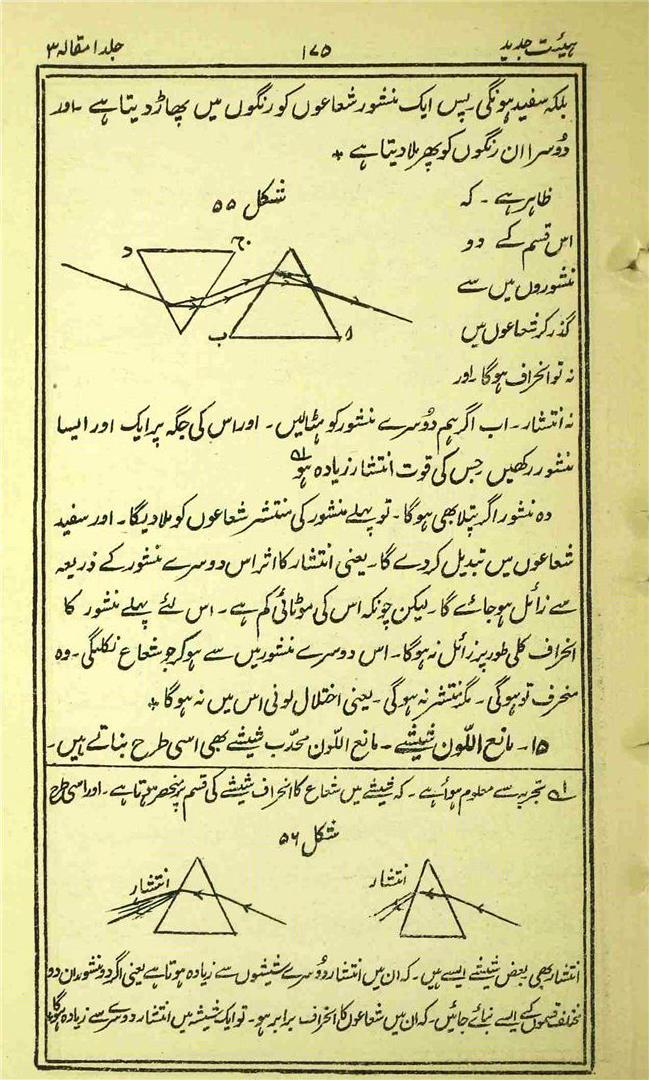 ہیئت جدید ۱۷۵ جلد ۱ مقالہ ۳
بلکہ سفید ہونگی۔ پس ایک منشور شعاعوں کو رنگوں میں پھاڑ دیتا ہے ۔ اور
دُوسرا ان رنگوں کو پھر ملا دیتا ہے +
ظاہر ہے ۔ کہ
شکل ۵۵
اس قسم کے دو
منشوروں میں سے
گذر کر شعاعوں میں
نہ تو انحراف ہوگا ۔ اور
د
ب
ا
نہ انتشار ۔ اب اگر ہم دُوسرے منشور کو ہٹالیں ۔ اور اس کی جگہ پر ایک اور ایسا
منشور رکھیں جس کی قوت انتشار زیادہ ہو ؂۱
وہ منشور اگر پتلا بھی ہوگا ۔ تو پہلے منشور کی منتشر شعاعوں کو ملا دیگا ۔ اور سفید
شعاعوں میں تبدیل کر دے گا ۔ یعنی انتشار کا اثر اس دوسرے منشور کے ذریعہ
سے زائل ہو جائے گا ۔ لیکن چونکہ اس کی موٹائی کم ہے ۔ اس لئے پہلے منشور کا
انحراف کلی طور پر زائل نہ ہوگا ۔ اس دوسرے منشور میں سے ہو کر جو شعاع نکلیگی ۔ وہ
منحرف تو ہوگی ۔ مگر منتشر نہ ہوگی ۔ یعنی اختلال لونی اس میں نہ ہوگا +
۱۵ ۔ مانع اللّون شیشے ۔ مانع اللّون محدّب شیشے بھی اسی طرح بناتے ہیں ۔
؂۱ تجربہ سے معلوم ہوا ہے ۔ کہ شیشے میں شعاع کا انحراف شیشے کی قسم پر منحصر ہوتا ہے ۔ اور اسی طرح
شکل ۵۶
انتشار
انتشار
انتشار بھی بعض شیشے ایسے ہیں ۔ کہ ان میں انتشار دُوسرے شیشوں سے زیادہ ہوتا ہے یعنی اگر دو منشور ان دو
مختلف قسموں کے ایسے بنائے جائیں ۔ کہ ان میں شعاعوں کا انحراف برابر ہو ۔ تو ایک شیشہ میں انتشار دوسرے سے زیادہ ہوگا